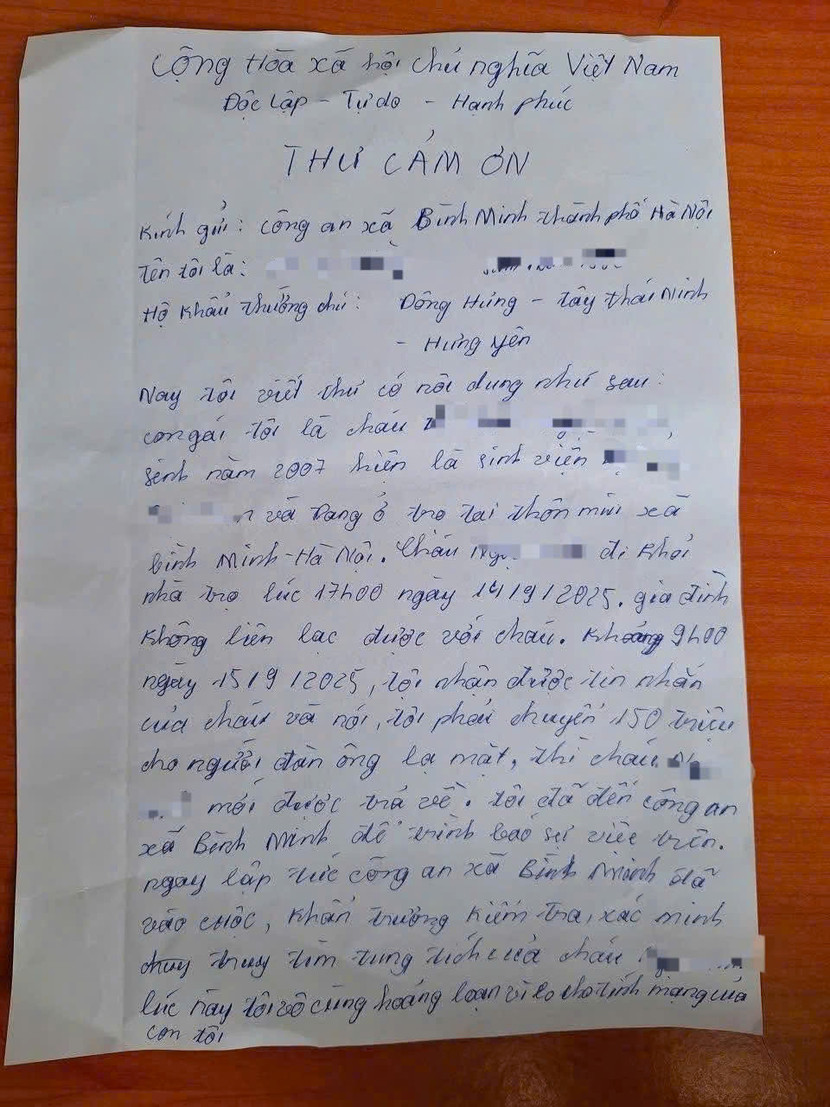 Cộng Hòa xã hội chủ nghĩa Việt Nam
Độc Lập - Tự do - Hạnh phúc
THƯ CẢM ƠN
Kính gửi: công an xã Bình Minh thành phố Hà Nội
Tên tôi là:
Hộ khẩu thường chú: Đông Hưng - Tây Thái Ninh
- Hưng Yên
Nay tôi viết thư có nội dung như sau:
con gái tôi là cháu
sinh năm 2007 hiện là sinh viện
và Đang ở trọ tại thôn mùi xã
bình Minh-Hà Nội. Cháu đi khỏi
nhà trọ lúc 17h00 ngày 14/9/2025. gia đình
không liên lạc được với cháu. Khoảng 9h00
ngày 15/9/2025, tôi nhận được tin nhắn
của cháu và nói, tôi phải chuyển 150 triệu
cho người đàn ông lạ mặt, thì cháu
mới được trả về. tôi đã đến công an
xã Bình Minh để trình báo sự việc trên.
ngay lập tức công an xã Bình Minh đã
vào cuộc, khẩn trương kiểm tra, xác minh
truy tìm tung tích của cháu
lúc này tôi vô cùng hoảng loạn vì lo cho tính mạng của
con tôi